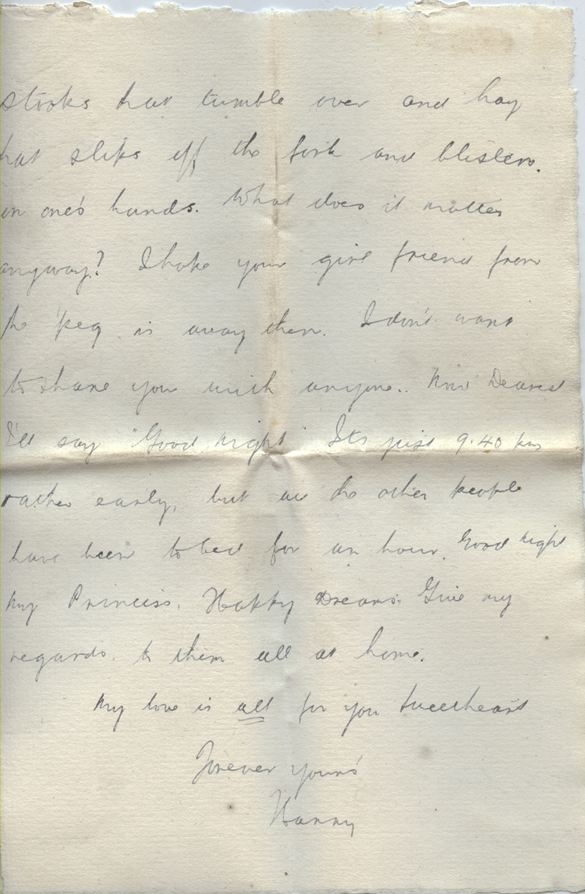 stooks that tumble over and hay
that slips off the fork and blisters.
on one's hands. What does it matter
anyway? I hope your girl friend from
the 'peg is away then. I don't want
to share you with anyone.. Now Dearest
I'll say "Good Night" Its just 9.40 pm
rather early, but all the other people
have been to bed for an hour. Good Night
My Princess. Happy Dreams. Give my
regards. to them all at home.
My love is all for you Sweetheart
Forever yours
Harry